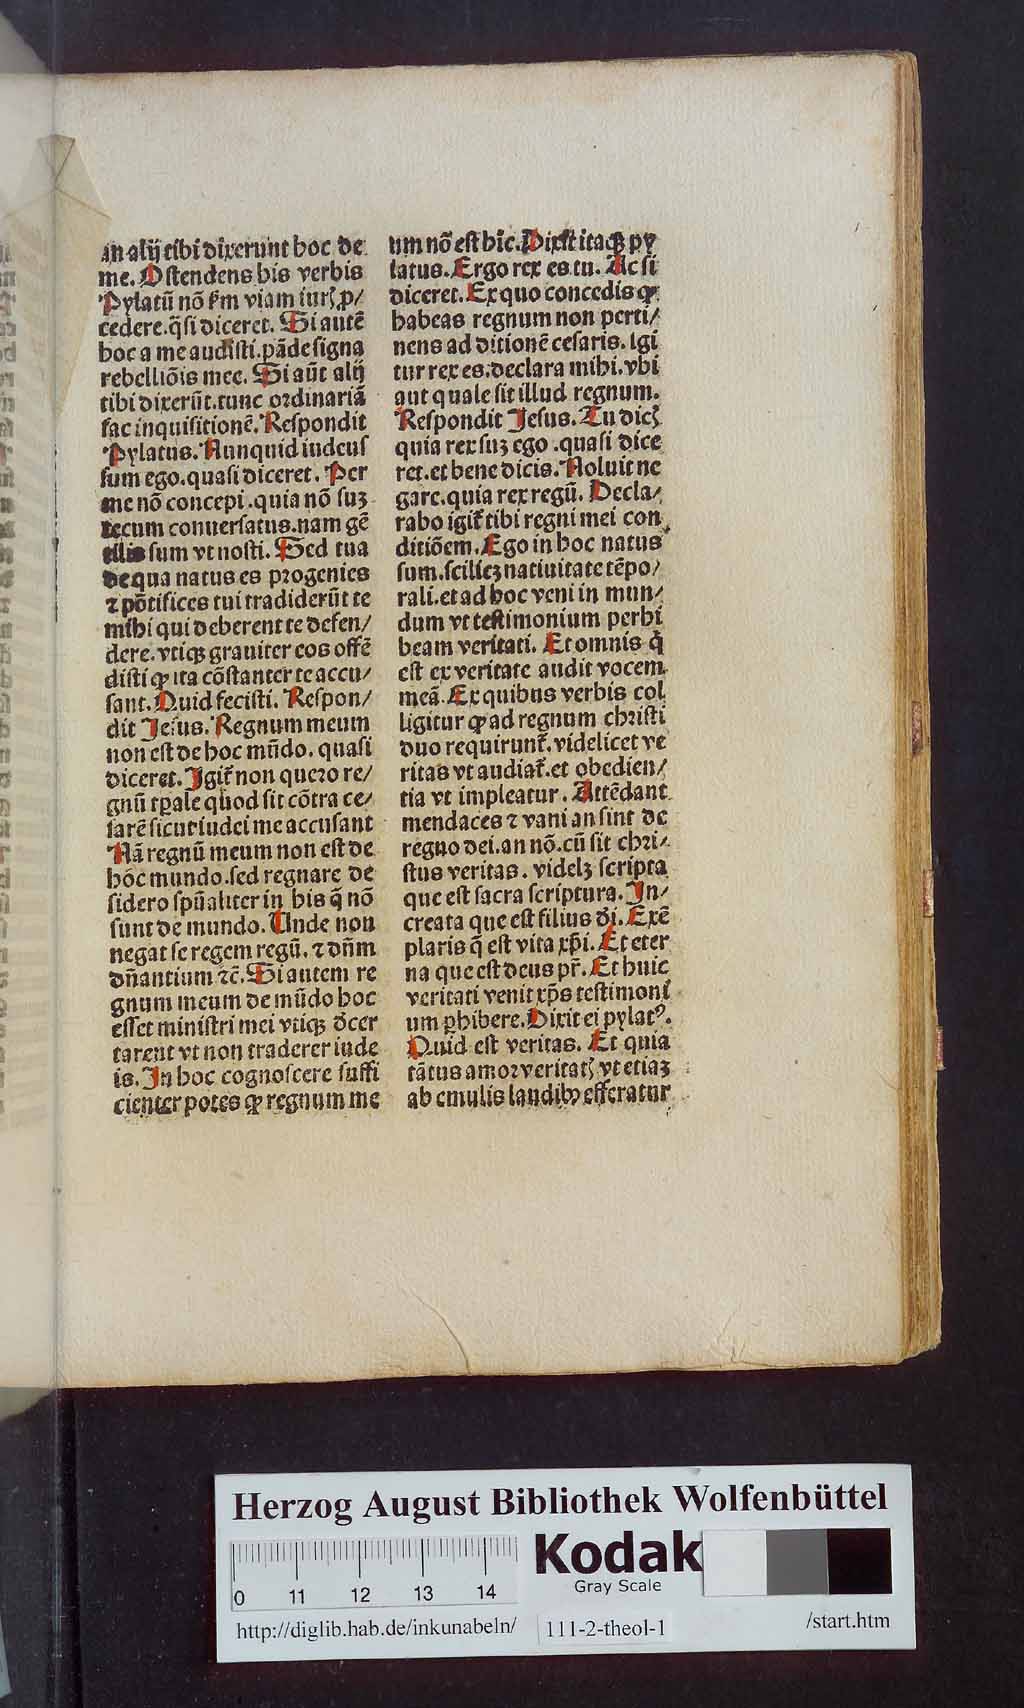 an alij tibi dixerunt hoc de
me. Ostendens his verbis
Pylatū nō ſm viam iurꝭ ꝓ/
cedere. q̄ſi diceret. Si autē
hoc a me audiſti. pāde ſigna
rebelliōis mee. Si aūt alij
tibi dixerūt. tunc ordinariā
fac inquiſitionē. Reſpondit
Pylatus. Nunquid iudeuſ
ſum ego. quaſi diceret. Per
me nō concepi. quia nō ſuꝫ
tecum conuerſatus. nam gē
tilis ſum vt noſti. Sed tua
de qua natus es progenies
⁊ pōtifices tui tradiderūt te
mihi qui deberent te defen/
dere. vtiqꝫ grauiter eos offē
diſti ꝙ ita cōſtanter te accu/
ſant. Quid feciſti. Reſpon/
dit Jeſus. Regnum meum
non eſt de hoc mūdo. quaſi
diceret. Igit̄ non quero re/
gnū tꝑale quod ſit cōtra ce/
ſarē ſicut iudei me accuſant
Nā regnū meum non eſt de
hoc mundo. ſed regnare de
ſidero ſpūaliter in his q̄ nō
ſunt de mundo. Unde non
negat ſe regem regū. ⁊ dn̄m
dn̄antium ⁊c̄. Si autem re
gnum meum de mūdo hoc
eſſet miniſtri mei vtiqꝫ d̄cer
tarent vt non traderer iude
is. In hoc cognoſcere ſuffi
cienter potes ꝙ regnum me
um nō eſt hic. Dixit itaqꝫ py
latus. Ergo rex es tu. Ac ſi
diceret. Ex quo concedis ꝙ
habeas regnum non perti/
nens ad ditionē ceſaris. Igi
tur rex es. declara mihi. vbi
aut quale ſit illud regnum.
Reſpondit Jeſus. Tu dicꝭ
quia rex ſuꝫ ego. quaſi dice
ret. et bene dicis. Noluit ne
gare. quia rex regū. Decla/
rabo igit̄ tibi regni mei con
ditiōem. Ego in hoc natus
ſum. ſcilicꝫ natiuitate tēpo/
rali. et ad hoc veni in mun/
dum vt teſtimonium perhi
beam veritati. Et omnis q̇
eſt ex veritate audit vocem
meā. Ex quibus verbis col
ligitur ꝙ ad regnum chriſti
duo requirunt̄. videlicet ve
ritas vt audiat̄. et obedien/
tia vt impleatur. Attēdant
mendaces ⁊ vani an ſint de
regno dei. an nō. cū ſit chri/
ſtus veritas. videlꝫ ſcripta
que eſt ſacra ſcriptura. In/
creata que eſt filius dī. Exē
plaris q̄ eſt vita xp̄i. Et eter
na que eſt deus pr̄. Et huic
veritati venit xp̄s teſtimoni
um ꝑhibere. Dixit ei pylatꝰ.
Quid eſt veritas. Et quia
tātus amor veritatꝭ vt etiaꝫ
ab emulis laudibꝰ efferatur
Herzog August Bibliothek Wolfenbüttel
0 11 12 13 14
Kodak
Gray Scale
http://diglib.hab.de/inkunabeln/ 111-2-theol-1 /start.htm